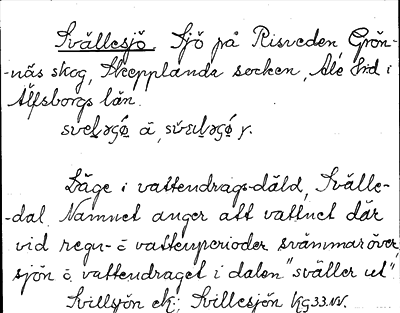 Svällesjö. Sjö på Risveden, Grön-
-näs skog, Skepplanda socken, Ale hd i
Älfsborgs län.
ä,
Läge i vattendrags-däld, Svälle-
-dal. Namnet anger att vattnet där
vid regn- o vattenperioder svämmar över,
sjön o. vattendraget i dalen "sväller ut"
Svillsjön ek; Svillesjön Kg 33. NV.